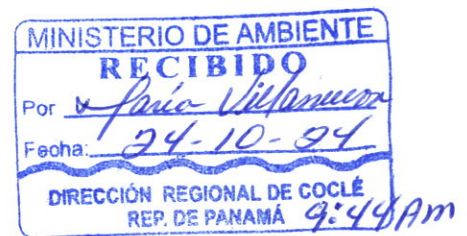 MINISTERIO DE AMBIENTE
RECIBIDO
Por María Villanueva
Fecha: 24-10-24
DIRECCIÓN REGIONAL DE COCLÉ
REP. DE PANAMÁ 9:44 Am